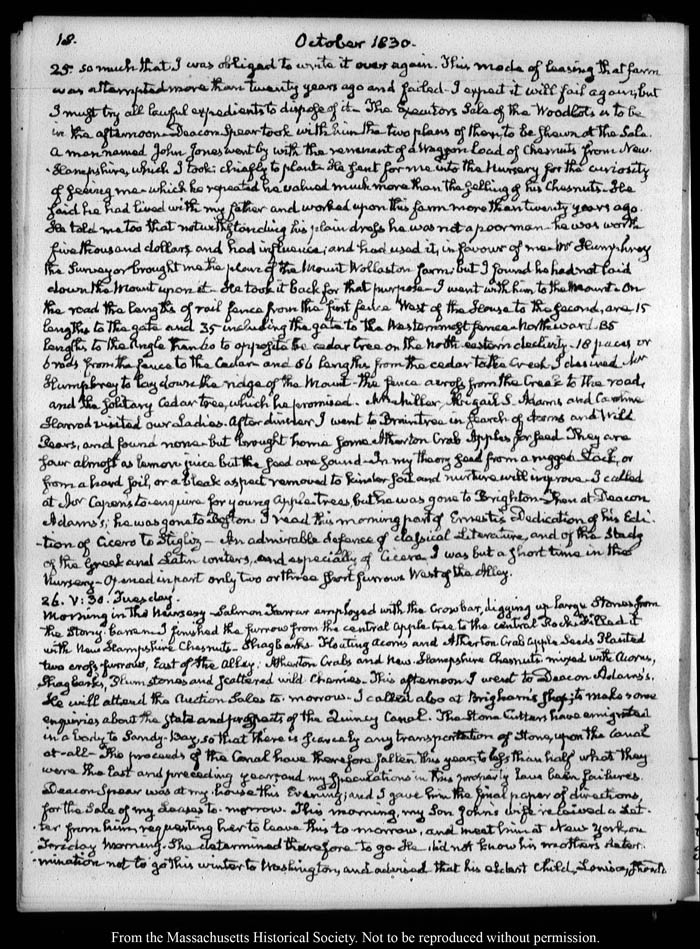 18. October 1830.
25. so much that I was obliged to write it over again. This mode of leasing that farm
was attempted more than twenty years ago and failed - I expect it will fail again, but
I must try all lawful expedients to dispose of it - The Executors Sale of the Woodlots is to be
in the afternoon - Deacon Spear took with him the two plans of them, to be shewn at the Sale.
A man named John Jones went by with the remnant of a Waggon load of Chesnuts from New-
Hampshire, which I took: chiefly to plant - He sent for me into the Nursery for the curiosity
of seeing me - which he repeated he valued much more than the selling of his Chesnuts. He
said he had lived with my father and worked upon this farm more than twenty years ago.
He told me too that notwithstanding his plain dress he was not a poor man - he was worth
five thousand dollars, and had influence; and had used it, in favour of me - Mr Humphrey
the Surveyor brought me the plan of the Mount Wollaston farm, but I found he had not laid
down the Mount upon it - He took it back for that purpose - I went with him to the Mount - On
the road the lengths of rail fence from the first fence West of the House to the second, are 15
lengths to the gate and 35 including the gate to the Westernmost fence - Northward 85
lengths to the Angle than 20 to opposite the cedar tree on the North eastern declivity - 18 paces or
6 rods from the fence to the Cedar - and 56 lengths from the cedar to the Creek. I desired Mr
Humphrey to lay down the ridge of the Mount - the fence across from the Creek to the road,
and the solitary Cedar tree, which he promised. Mrs Miller, Abigail S. Adams and Caroline
Harrod visited our Ladies. After dinner I went to Braintree in search of Acorns and Wild
Pears, and found none - but brought home some Atherton Crab Apples for seed They are
sour almost as lemon juice but the seed are sound - In my theory seed from a rugged Stock, or
from a hard soil, or a bleak aspect removed to kinder soil and nurture will improve - I called
at Mr Capens to enquire for young Apple trees, but he was gone to Brighton - Then at Deacon
Adams's; he was gone to Boston I read this morning part of Ernesti's Dedication of his Edi-
-tion of Cicero to Stigliz - An admirable defence of classical Literature, and of the Study
of the Greek and Latin writers, and especially of Cicero I was but a short time in the
Nursery - Opened in part only two or three short furrows West of the Alley.
26. V: 30. Tuesday.
Morning in the Nursery - Salmon Farrar employed with the Crowbar, digging up large Stones from
the Stony barren - I finished the furrow from the central Apple tree to the Central Rock - Filled it
with New Hampshire Chesnuts - Shagbarks Floating acorns and Atherton Crab Apple Seeds Planted
two cross-furrows, East of the Alley: Atherton Crabs and New Hampshire Chesnuts mixed with Acorns,
Shagbarks, Plumstones and scattered wild Cherries. This afternoon I went to Deacon Adams's.
He will attend the Auction Sales to-morrow - I called also at Brigham's Shop; to make some
enquiries about the state and prospects of the Quincy Canal. The Stone Cutters have emigrated
in a body to Sandy-Bay, so that there is scarcely any transportation of Stone, upon the Canal
at-all - The proceeds of the Canal have therefore fallen this year, to less than half what they
were the last and preceding year; and my speculations in this property have been failures.
Deacon Spear was at my house this Evening; and I gave him the final paper of directions,
for the Sale of my Leases to-morrow. This morning, my Son John's wife received a Let-
-ter from him, requesting her to leave this to morrow, and meet him at New York, on
Friday Morning. She determined therefore to go He did not know his mothers deter-
-mination not to go this winter to Washington, and advised that his eldest Child, Louisa, should
From the Massachusetts Historical Society. Not to be reproduced without permission.